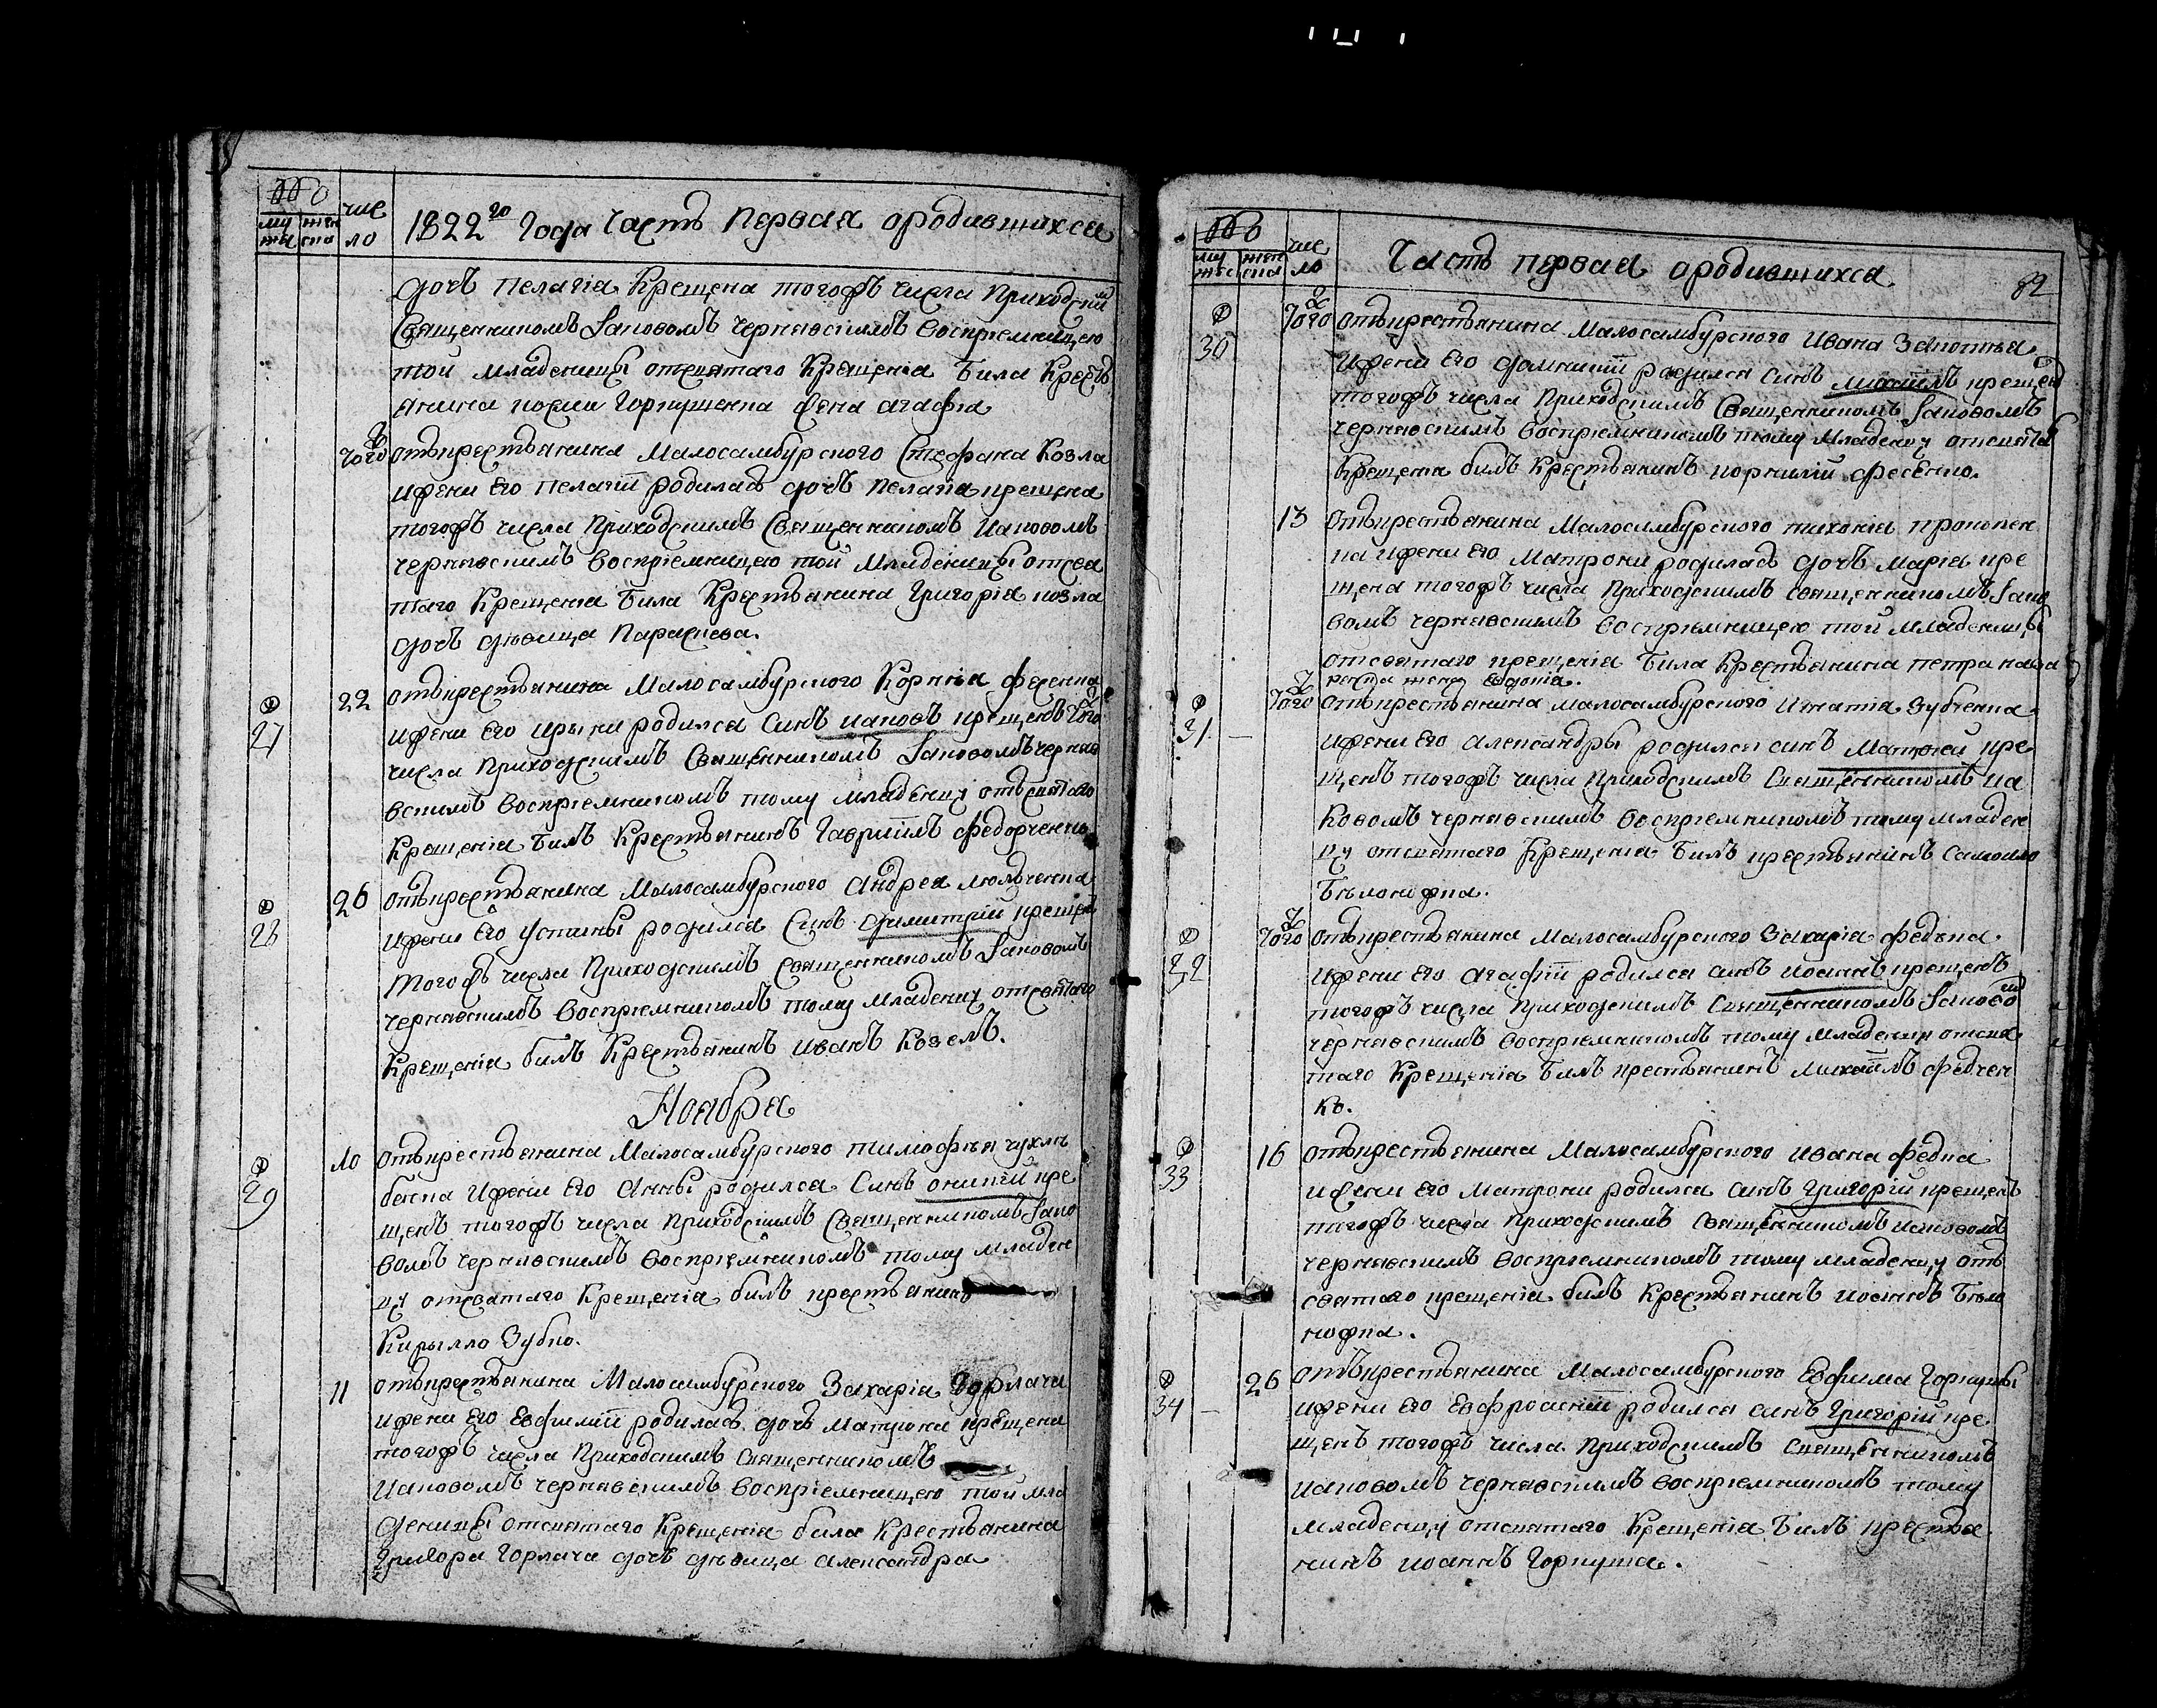 мужеска
женска
число
1822го Года часть первая о родившихся
дочь Пелагіа Крещена тогожъ числа Приходским
Священникомъ Іаковомъ Чернявскимъ Воспріемницею
той младеницы отсвятаго Крещеніа Била Кресть
янина Космы Горпущенка жена Агафіа
того ж отъкрестьянина Малосамбурского Стефана Козла
ижени Его Пелагіи родилась дочь Пелагіа крещена
тогожъ числа Приходскимъ Священникомъ Иаковомъ
чернявскимъ Воспріемницею той Младеницы отсвя
таго Крещеніа Била Крестьянина Григоріа козла
дочь дѣвица Параскева.
27
22 отъкрестьянина Малосамбурского Корніа фесенка
ижени Его Ирыни родился Синъ иаковъ крещенъ того ж
числа Приходскимъ Священникомъ Іаковомъ черня
вскимъ Воспріемникомъ тому младенцу отъсвятаго
Крещеніа Билъ Крестьянинъ Гавриилъ Федорченко
28
26 отъкрестьянина Малосамбурского Андрея люльченка
ижени Его Устины родился Синъ Димитрій крещен
Тогожъ числа Приходскимъ Священникомъ Іаковомъ
чернявскимъ Воспріемникомъ тому младенцу отсвятаго
Крещеніа билъ Крестьянинъ Иванъ Козелъ.
Ноабра
29
10 отъкрестьянина Малосамбурского тимофѣя чухлѣ
бенка ижени Его Анны родился Синъ онипій кре
щенъ тогожъ числа Приходскимъ Священникомъ Іако
вомъ чернявскимъ Воспріемникомъ тому младен
цу отсватаго Крещеніа билъ крестьянинъ
Кирылло Зубко.
11 отъкрестьянина Малосамбурского Захаріа Горлача
ижени Его Евфиміи родилась дочь Матрона крещена
тогожъ числа Приходскимъ Священникомъ
Иаковомъ чернявскимъ Воспріемницею той мла
деницы отсвятаго Крещеніа била Крестьянина
Григора Горлача дочь дѣвица Александра
мужеска
женска
число
Часть первая о родившихся
82
30
того ж отъкрестьянина Малосамбурского Ивана
ижени Его домникіи родился Синъ михаилъ крещен
тогожъ числа Приходскимъ Священникомъ Іаковомъ
чернявскимъ Воспріемникомъ тому Младенцу отсвята
Крещени билъ Крестьянинъ корнилій фесенко.
13 отъкрестьянина Малосамбурского тихоніа прокопен
ка ижени Его Матрони родилась дочь Маріа кре
щена тогожъ числа Приходскимъ священникомъ Іако
вомъ чернявскимъ воспріемницею той младеницы
отсвятаго крещеніа Била Крестьянина петра
жена Евдокіа.
31
того ж отъкрестьянина малосамбурского Игнатіа Зубченка
ижени Его Александры родился синъ Матфей кре
щенъ тогожъ числа Приходскимъ Священникомъ Иа
Ковомъ чернявскимъ Воспріемникомъ тому младен
цу отсвятаго Крещеніа Билъ крестьянинъ Самоило
Бѣлоножка.
32
того ж отъкрестьянина Малосамбурского Захаріа федька
ижени Его Агафіи родился синъ иоаннъ крещенъ
тогожъ числа Приходскимъ Священникомъ Іаковом
чернявскимъ Воспріемникомъ тому младенцу отсвя
таго Крещеніа Билъ крестьянинъ Михаилъ федчен
ко.
33
16 отъкрестьянина Малосамбурского Ивана федка
ижени Его Матрони родился синъ Григорій крещенъ
тогожъ числа приходскимъ священникомъ иаковомъ
чернявскимъ воспріемникомъ тому младенцу отъ
святаго крещеніа билъ Крестьянинъ иоаннъ Бѣло
ножка.
34
26 отъкрестьянина Малосамбурского Евфима Горкуши
ижени Его Евфросиніи родился синъ Григорій кре
щенъ тогожъ числа Приходскимъ Священникомъ
иаковомъ чернявскимъ воспріемникомъ тому
младенцу отсвятаго Крещеніа Билъ крестья
нинъ иоаннъ Горкуша.